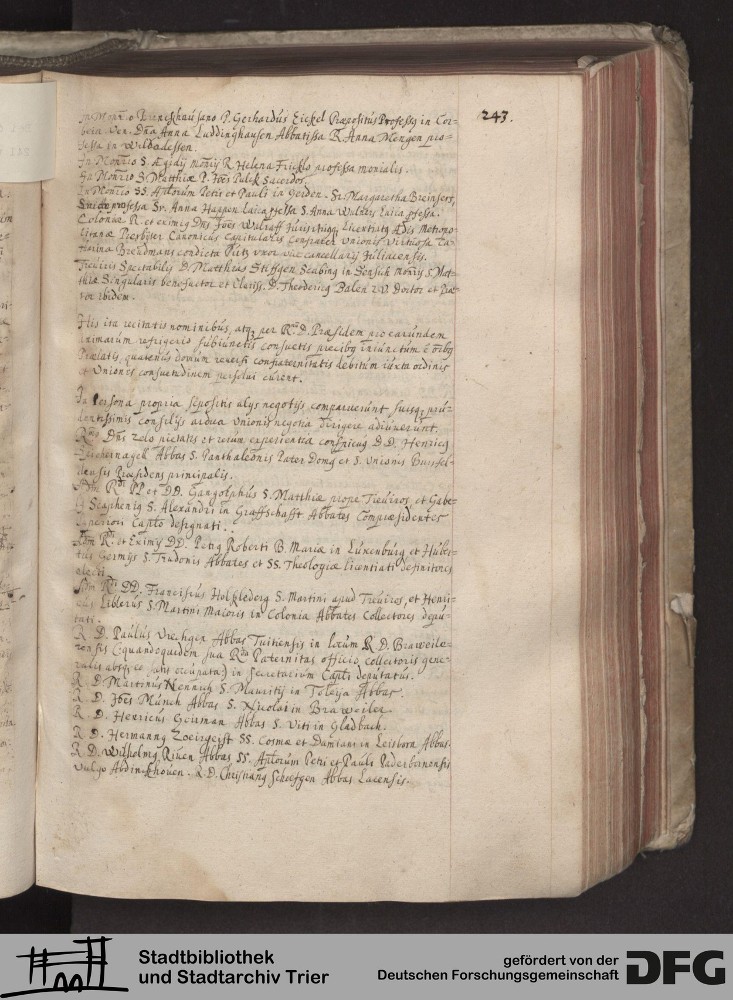 243.
In Monrio P. Gerhardus Eickel Præpositus Professus in Cor=
beia Ven. Dna Anna Luddinghausen Abbatissa R. Anna Mengen pro=
fessa in Willebadessen.
In Monrio S. Ægidij R. Helena professa monialis.
In Monrio S. Matthiæ P. Joes Sacerdos.
In Monrio SS. Aplorum Petri et Pauli in Gerden. Sr. Margaretha
professa Sr. Anna Happen laica S. Anna Wulners laica pfessa.
Coloniæ R. et eximiq Dns Joes Walraff Juris Licentiatq Ædis Metropo=
litanæ Presbiter Canonicus capitularis confrater Unionis virtuosa Ca=
tharina Breudmans condicta Pütz uxor Cancellarij Juliacensis.
Treviris Spectabilis D. Matthias Steffgen Scabinq in monrij S. Mat=
thiæ Singularis benefactor et Clariss. D. Theodericq Balen Doctor et
ibidem.
His ita recitatis nominibus, atq per Rm D. Præsidem pro earundem
animarum refrigerio subiunctis consuetis precibq iniunctum e oibq
Prælatis, quatenus domum reversi confraternitatis debitum iuxta ordinis
et Unionis consuetudinem persolvi curent.
In Persona propria sepositis alijs negotijs comparuerunt, suisq pru=
dentissimis consilijs ardua Unionis negotia dirigere adiuverunt.
Rmq Dns zelo pietatis et rerum experientia conspicuq D.D. Henricq
Abbas S. Panthaleonis Pater Domq et S. Unionis Bursfel=
densis Præsidens principalis.
Adm Rdi PP. et DD. Gangolphus S. Matthiæ prope Treviros, et Gabe=
S. Alexandri in Graffschafft Abbates Compræsidentes
Caplo designati.
Adm Rdi et Eximij DD. Petrq Roberti B. Mariæ in Luxenburg et Huber=
tus Germijs S. Trudonis Abbates et SS. Theologiæ licentiati definitores
electi.
Adm Rdi DD. Franciscus S. Martini apud Treviros, et Henri=
cus Liblerus S. Martini Maioris in Colonia Abbates Collectores depu=
tati.
R. D. Paulus Abbas Tuitiensis in locum R. D. Brawiele=
rensis (: quandoquidem sua Rda Paternitas officio collectoris gene=
ralis absq eo satis occupata :) in Secretarium Capli deputatus.
R. D. Martinus Hennich S. Mauritij in Toleija Abbas.
R. D. Joes Münch Abbas S. Nicolai in Braweiler.
R. D. Henricus Abbas S. Viti in Gladbach.
R. D. Hermannq SS. Cosmæ et Damiani in Leisborn Abbas.
R. D. Wilhelmq Riuen Abbas SS. Aplorum Petri et Pauli Paderbornensis
vulgo Abdinckhouen. R. D. Christianq Scheefgen Abbas Lacensis.
Stadtbibliothek
und Stadtarchiv Trier
gefördert von der
Deutschen Forschungsgemeinschaft
DFG